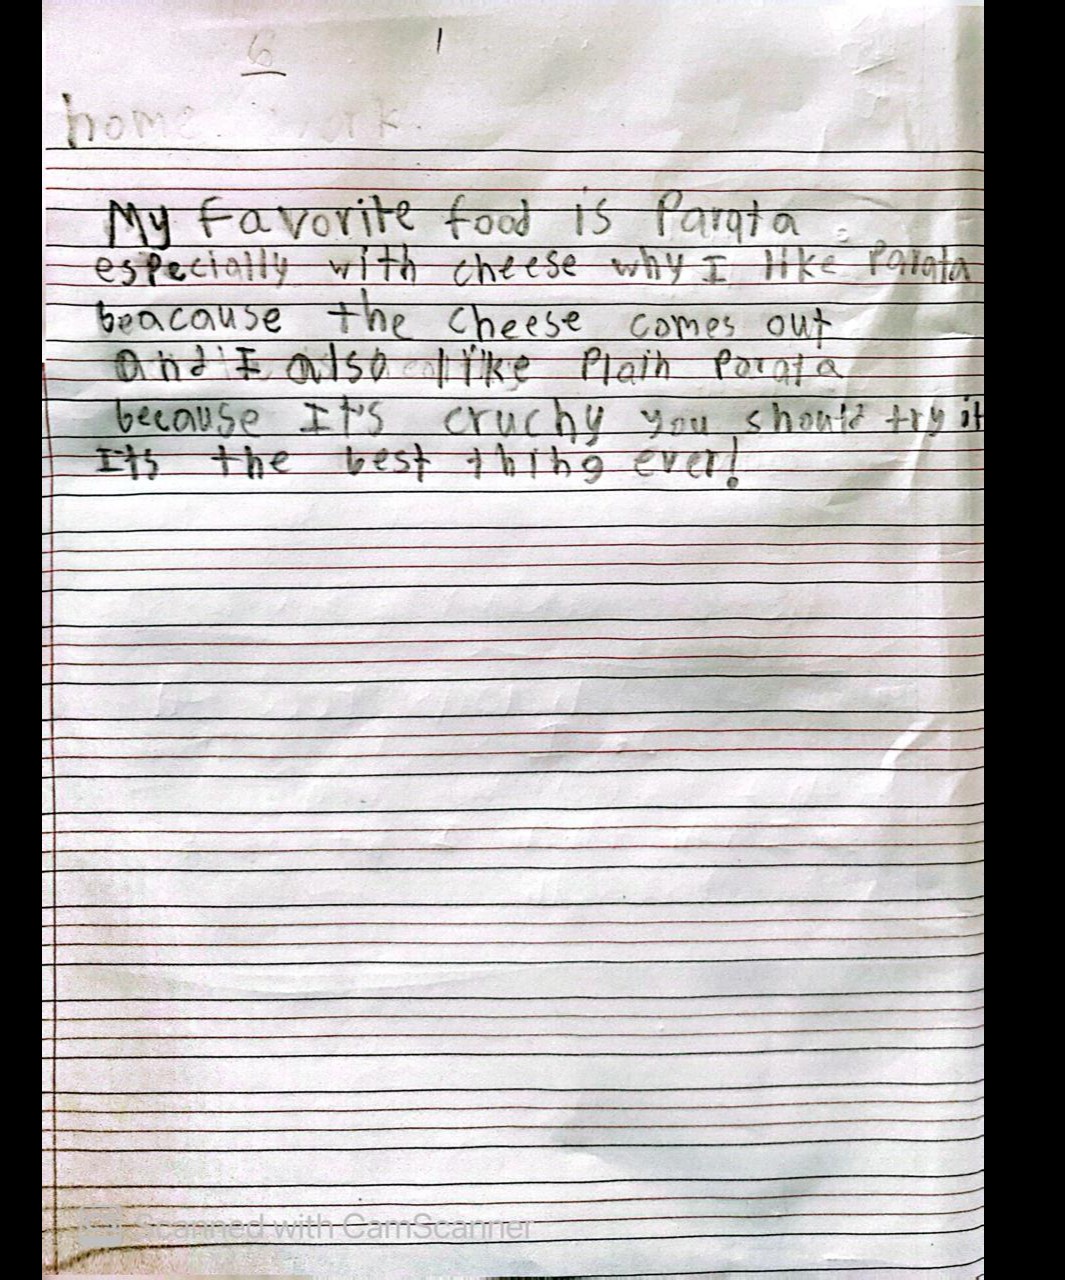 6
home work.
My Favorite food is Parata
especially with cheese why I like Parata
beacause the cheese comes out
and I also like Plain Parata
because It's cruchy you should try it
Its the best thing ever!
Scanned with CamScanner